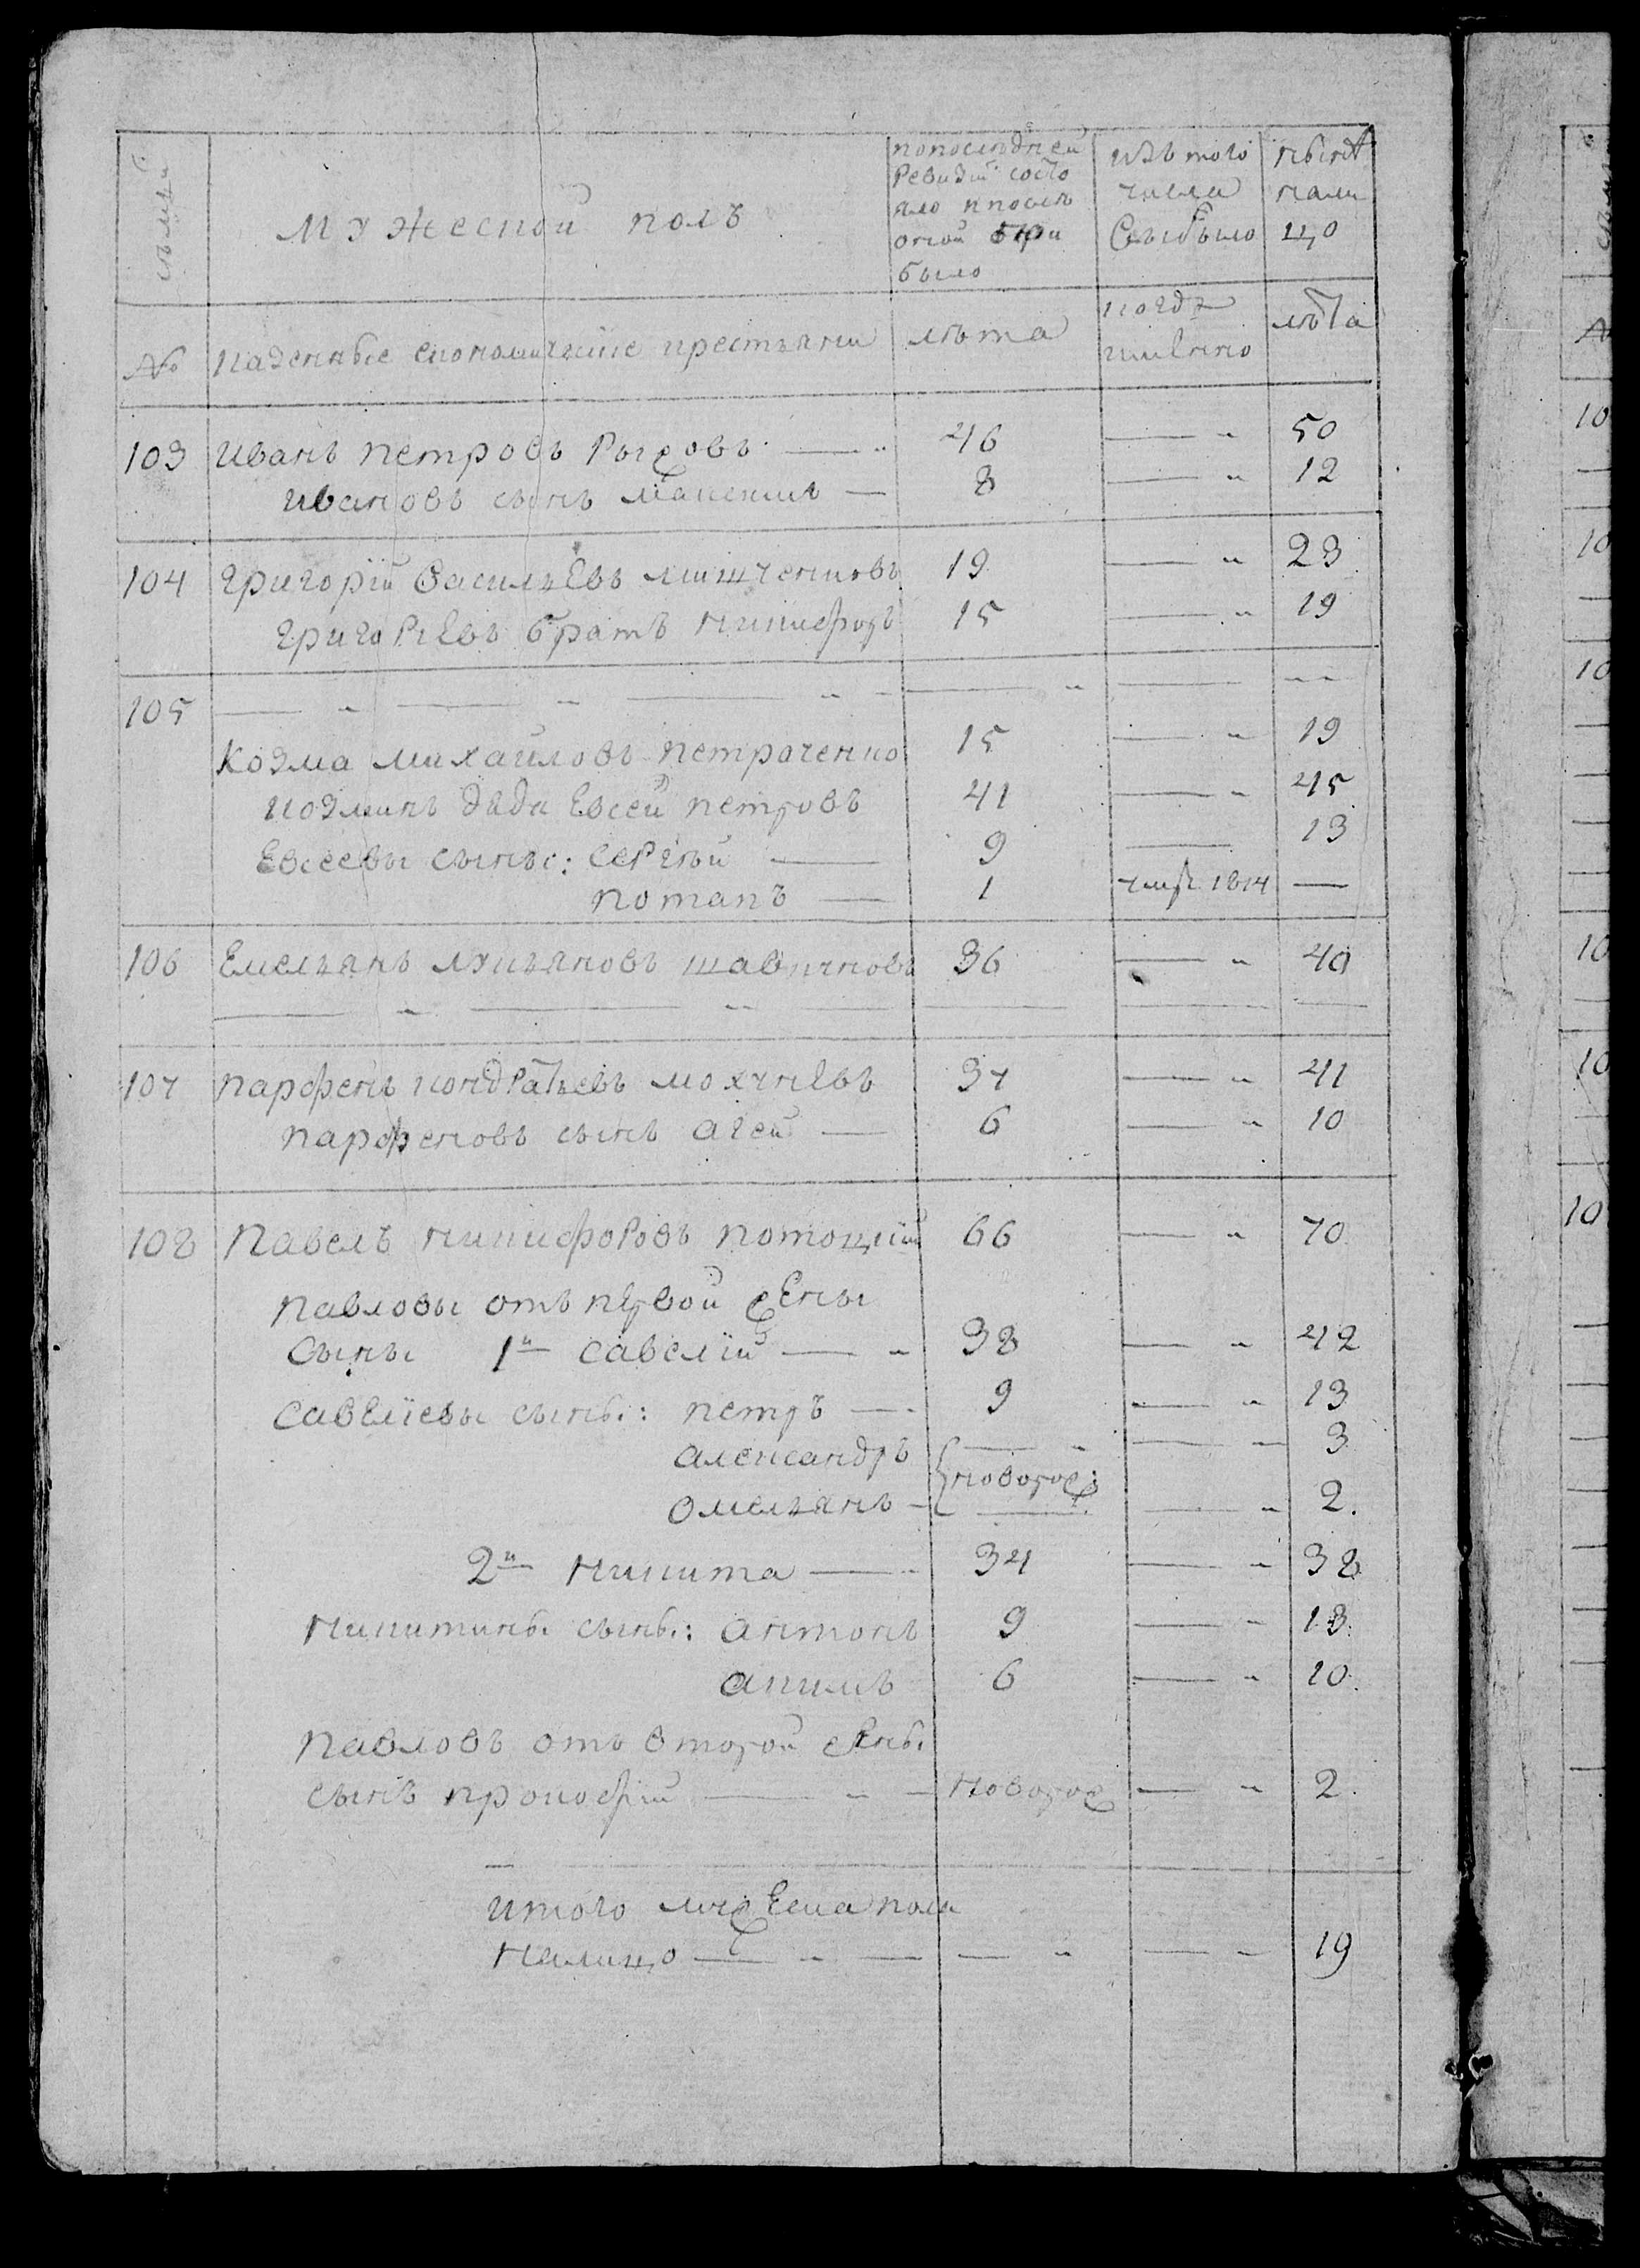 семьи
мужеской полъ
попоследней ревизiи состояло ипосле оной прибыло
изъ того числа выбыло
ныне налицо
№ казенные економическiе крестьяни лѣта когда имянно лѣта
103 Иванъ петровъ Рыжовъ — 46 — 50
Ивановъ сынъ максимъ — 8 — 12
104 григорiй васильевъ мищенковъ 19 — 23
григорьевъ братъ никифоръ 15 — 19
105 — — — —
Козма михайловъ петраченко 15 — 19
козминъ дядя Евсей петровъ 41 — 45
Евсеевы сыны: сергѣй — 9 — 13
потапъ — 1 умре 1814 —
106 Емельянъ лукьяновъ 36 — 40
— — — —
107 парфенъ кондратьевъ 37 — 41
парфеновъ сынъ агей — 6 — 10
108 Павелъ никифоровъ потоцкiй 66 — 70
павловы отъ первой жены
сыны 1й савелiй — 38 — 42
савелiевы сыны: петръ — 9 — 13
александръ — — 3
новорож:
омельянъ — — 2.
2й никита — 34 — 38
никитины сыны: антонъ 9 — 13.
акимъ 6 — 10.
павловъ отъ второй жены
сынъ прокофiй — новорож — 2.
итого мужеска пола
налицо — — — 19